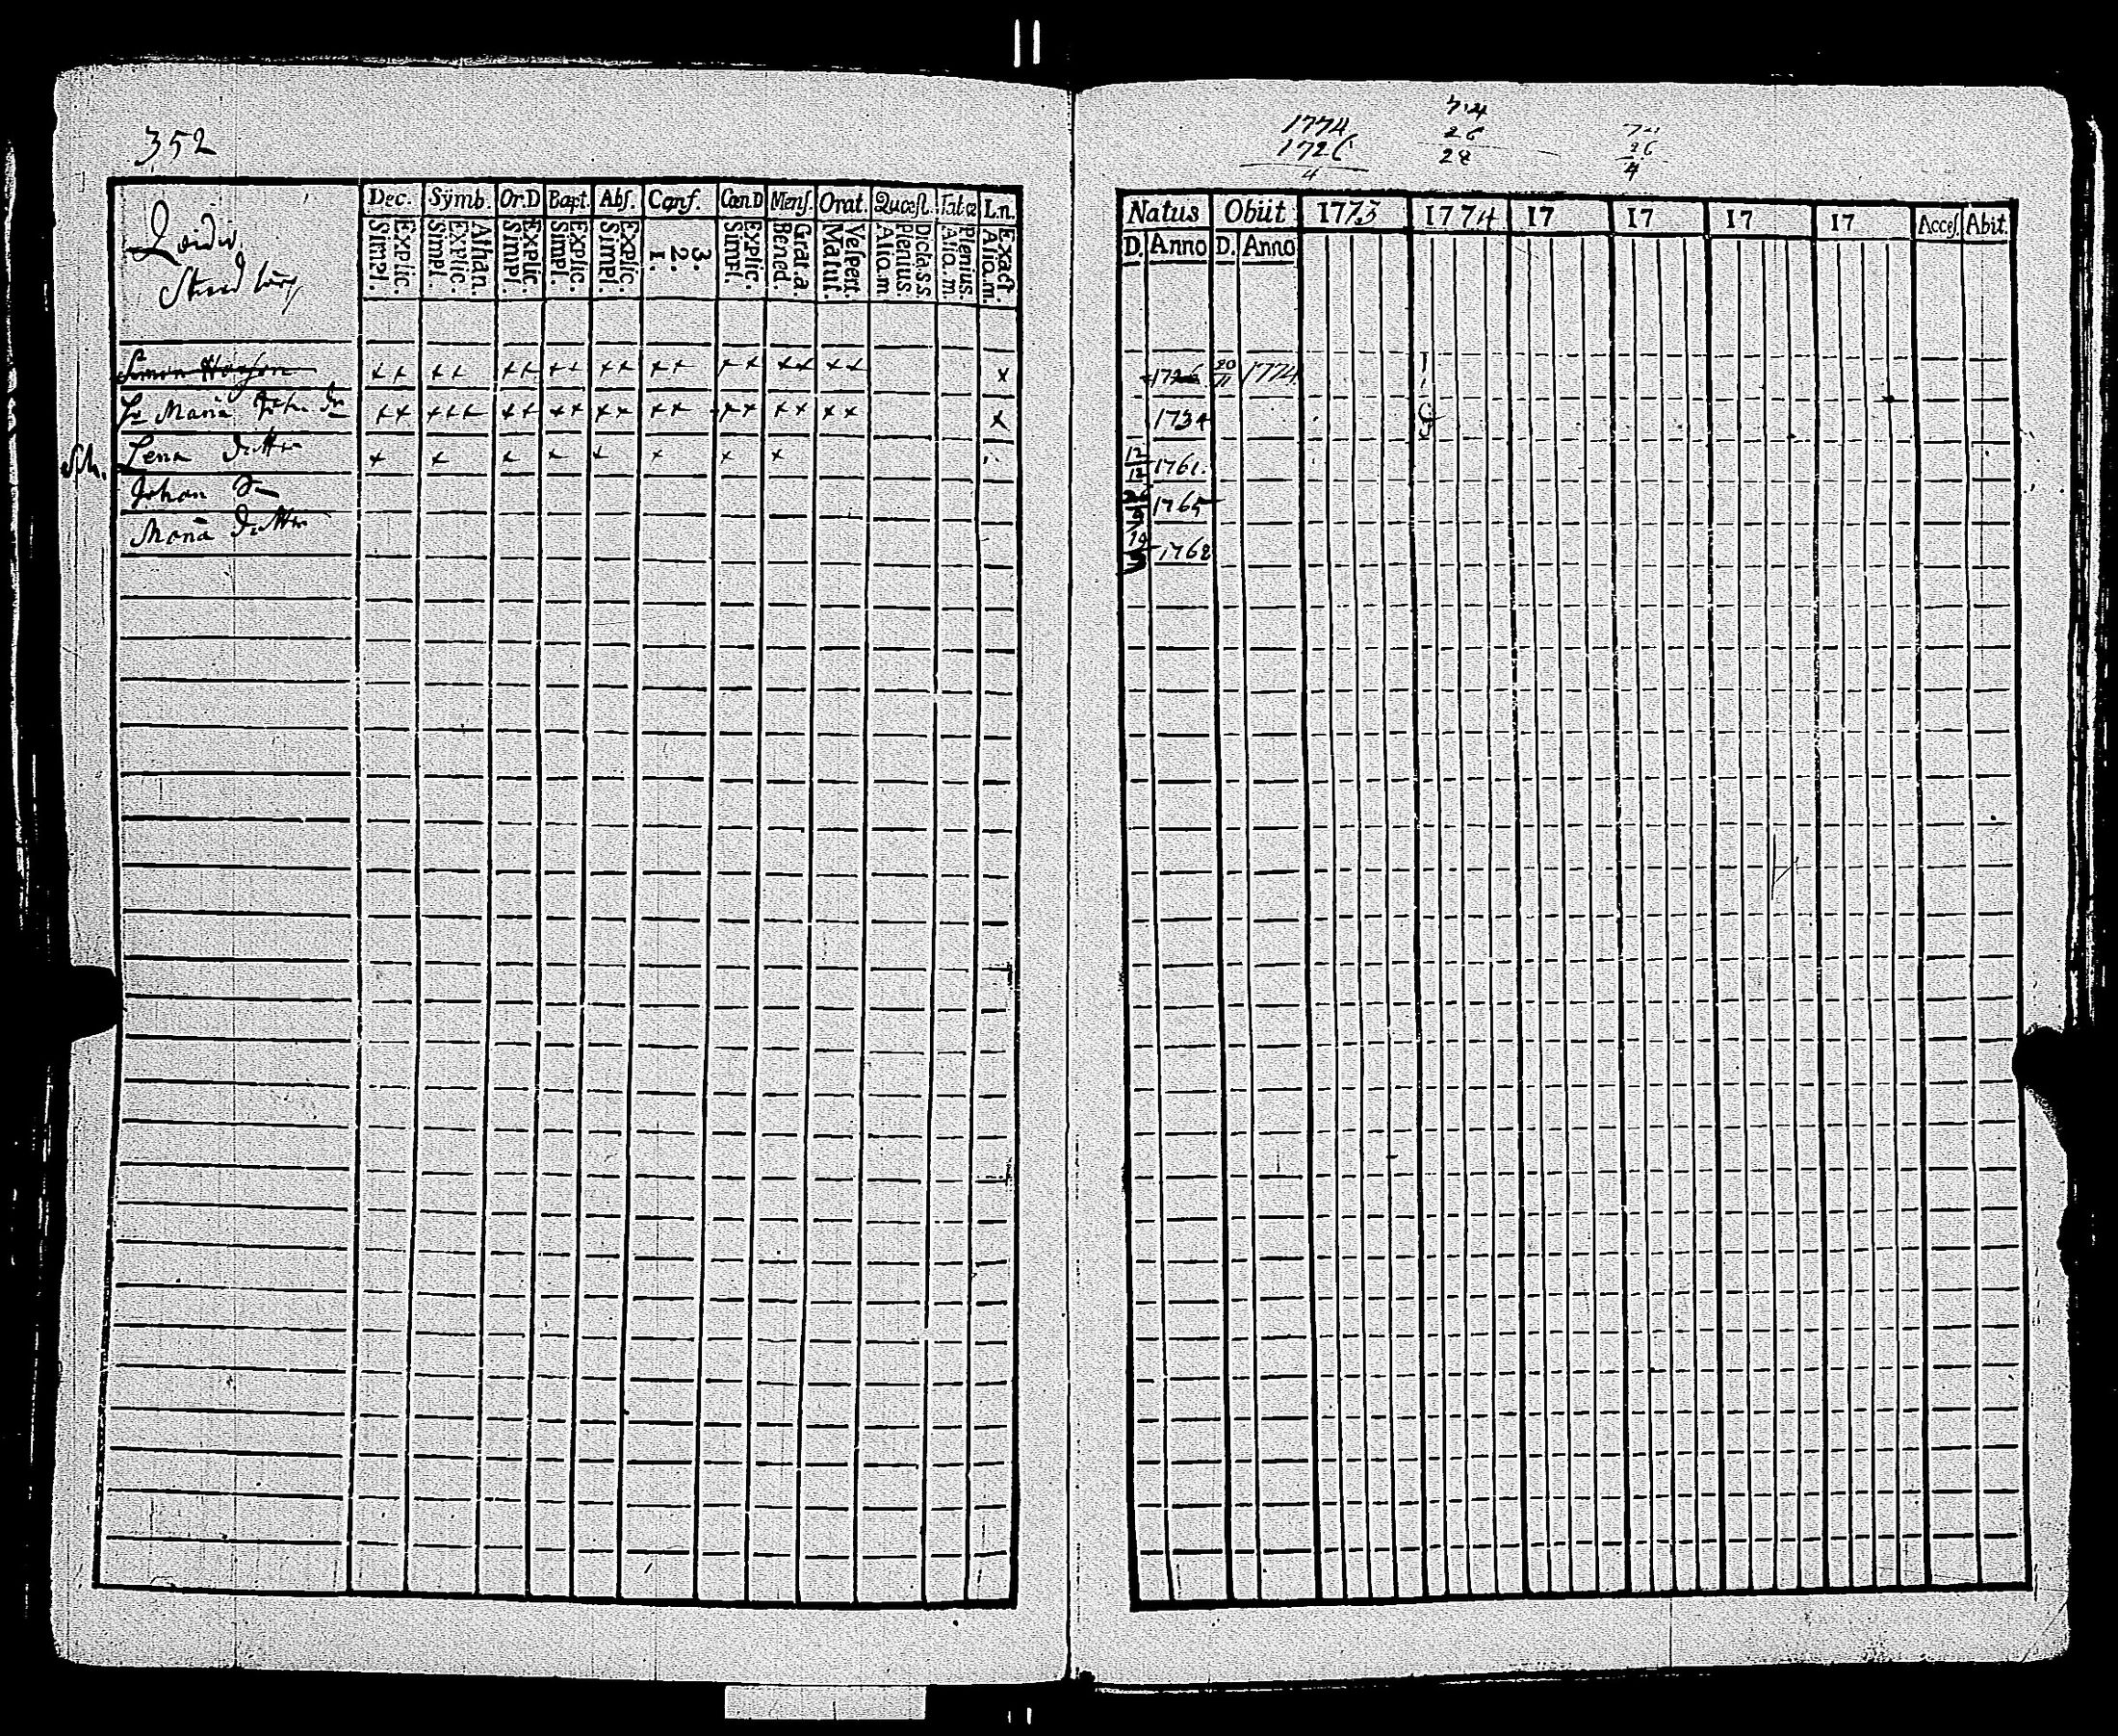 352
Dec. Sÿmb. Or.D Bapt. Abs. Conf. Cœn.D Mens. Orat. Quæst. Tab.œ L.n.
Explic. Simpl. Athan. Explic. Simpl. Explic. Simpl. Explic. Simpl. Explic. Simpl. 3. 2. 1. Explic. Simpl. Grat.a. Bened. Vespert. Matut. Dicta.s.s. Plenius. Alio.m. Plenius. Alio.m. Exact. Alio.m.
Simon
H. Maria
Lena Ditto
Johan
Maria Ditto
1774
1726
4
74
26
28
74
26
4
Natus Obiit 1773 1774 17 17 17 17 Acces. Abit.
D. Anno D. Anno
1726 20/11 1774
1734
12/12 1761.
1765
1768